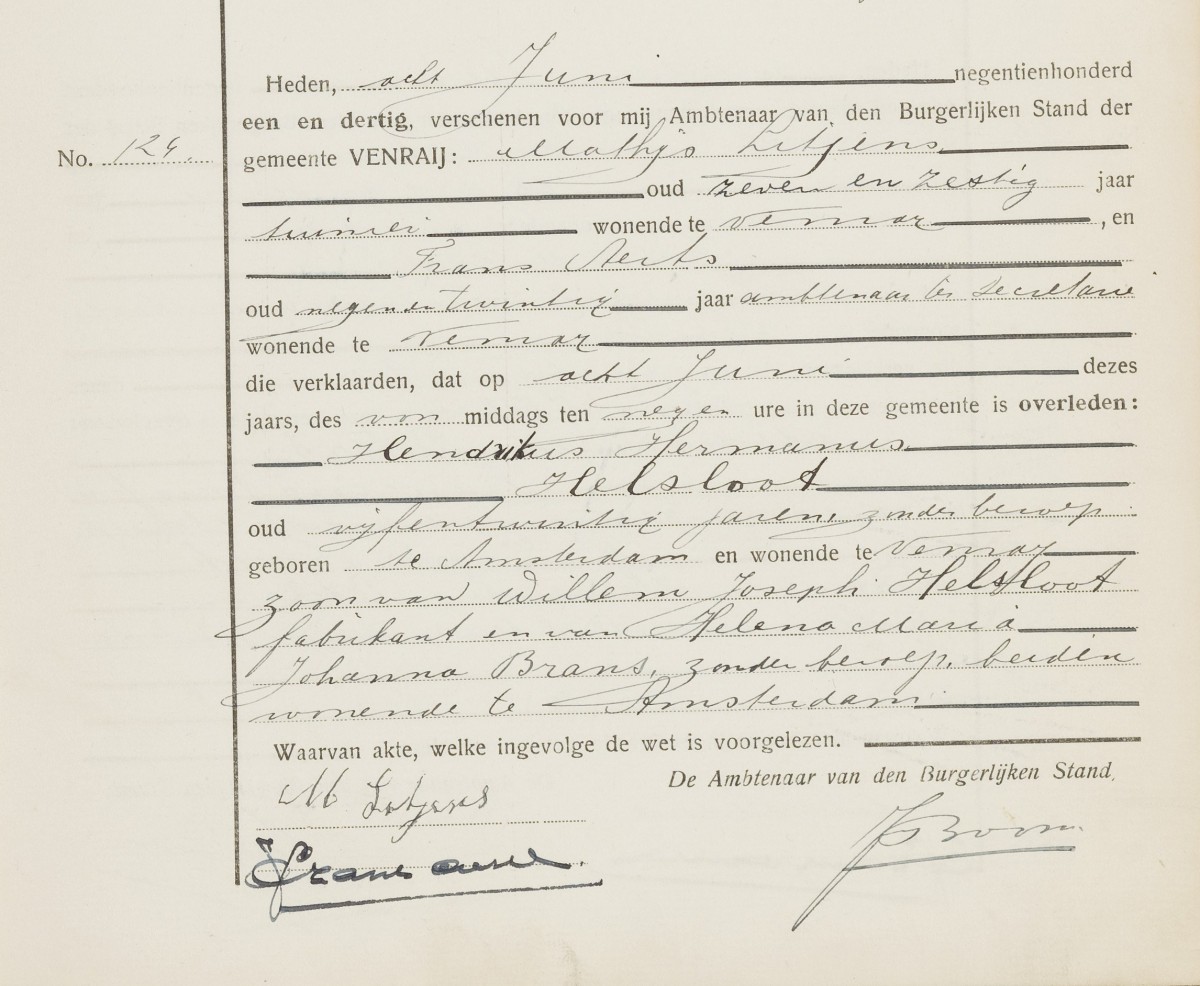 Heden, acht Juni negentienhonderd
een en dertig, verschenen voor mij Ambtenaar van den Burgerlijken Stand der
No. 124. gemeente VENRAIJ: Mathijs Litjens
oud zeven en zestig jaar
tuinier wonende te Venray, en
Frans Aerts
oud negen en twintig jaar ambtenaar ter Secretarie
wonende te Venray
die verklaarden, dat op acht Juni dezes
jaars, des voor middags ten negen ure in deze gemeente is overleden:
Hendrikus Hermanus
Helsloot
oud vijfentwintig jaren, zonder beroep
geboren te Amsterdam en wonende te Venray
zoon van Willem Joseph Helsloot
fabrikant en van Helena Maria
Johanna Brans, zonder beroep, beiden
wonende te Amsterdam
Waarvan akte, welke ingevolge de wet is voorgelezen.
De Ambtenaar van den Burgerlijken Stand,
M Litjens
Frans